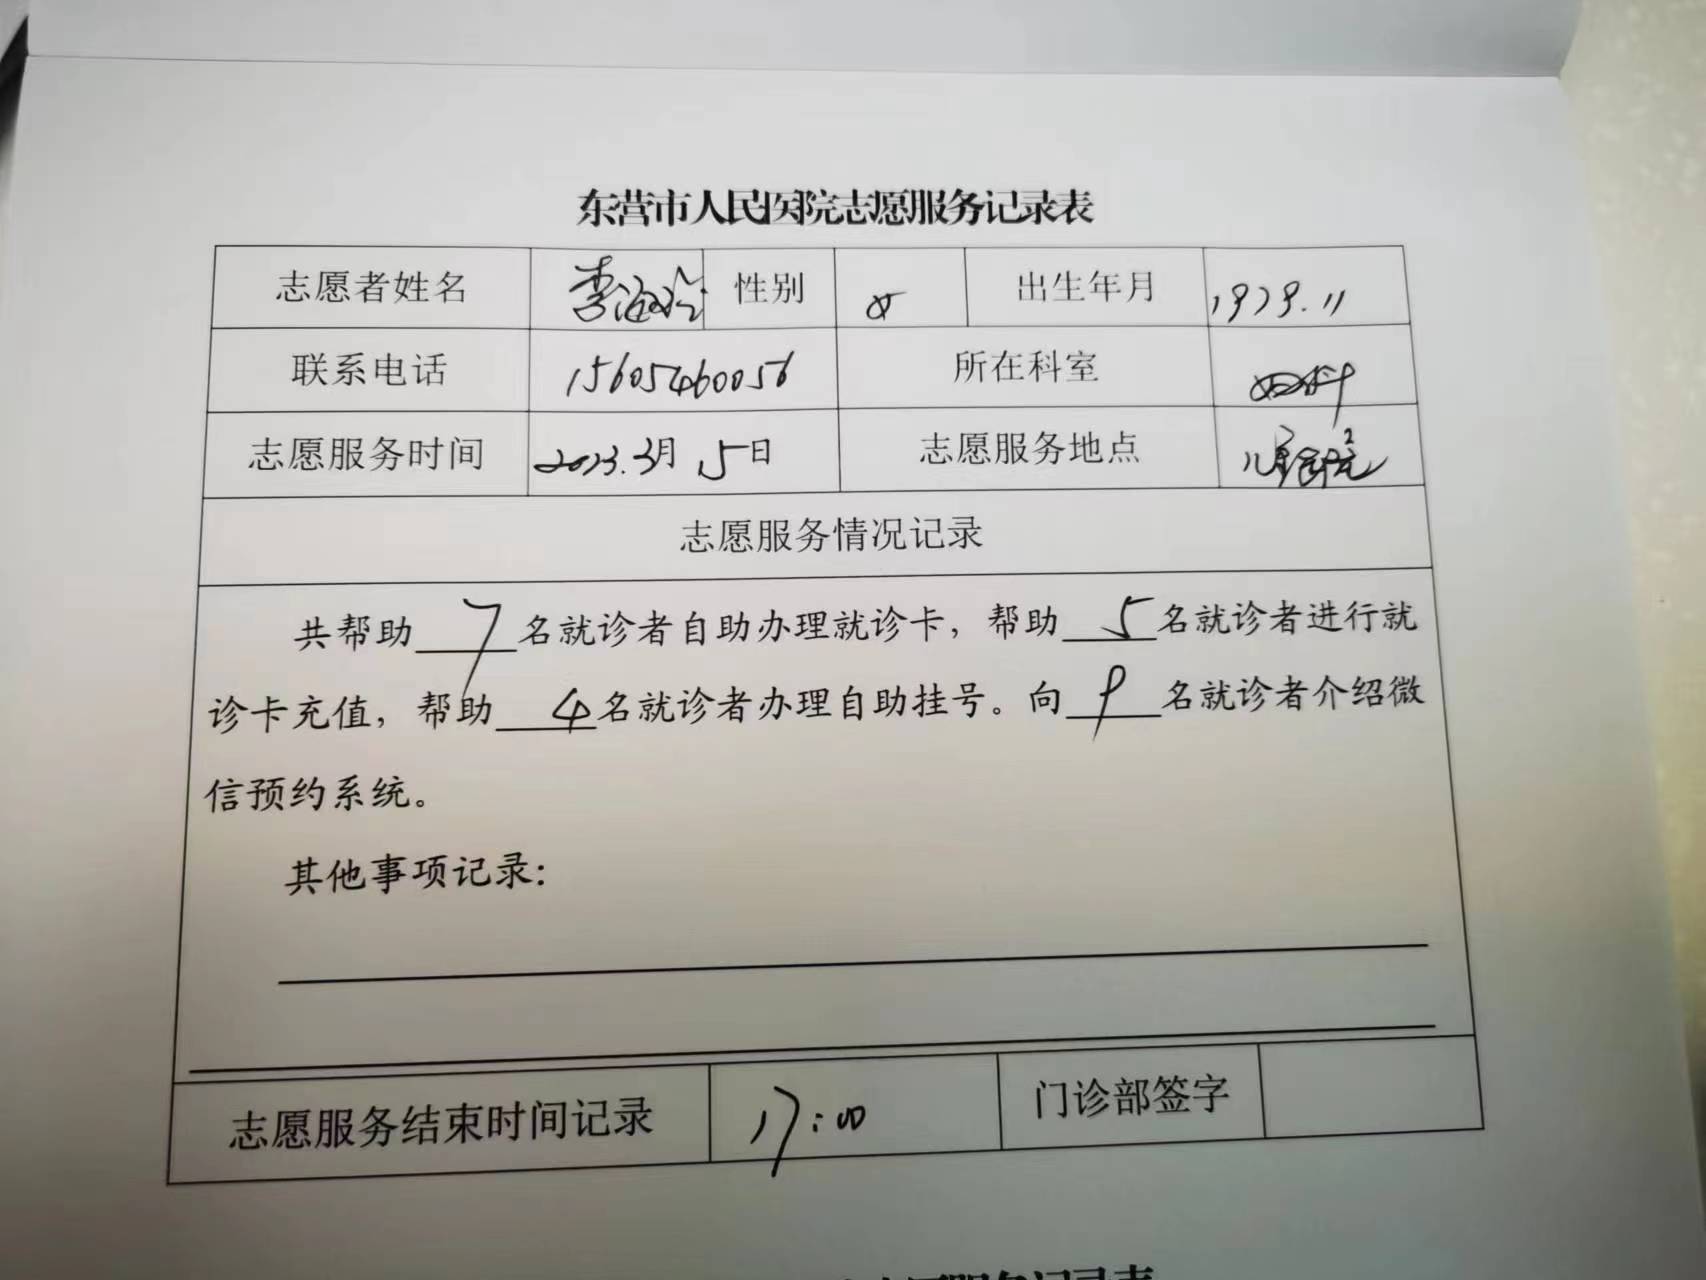 东营市人民医院志愿服务记录表
志愿者姓名 李海玲 性别 女 出生年月 1979.11
联系电话 15605460056 所在科室 妇科
志愿服务时间 2023.3月15日 志愿服务地点 儿童
志愿服务情况记录
共帮助 7 名就诊者自助办理就诊卡，帮助 5 名就诊者进行就
诊卡充值，帮助 4 名就诊者办理自助挂号。向 9 名就诊者介绍微
信预约系统。
其他事项记录：
志愿服务结束时间记录 17:00 门诊部签字
志愿服务记录表